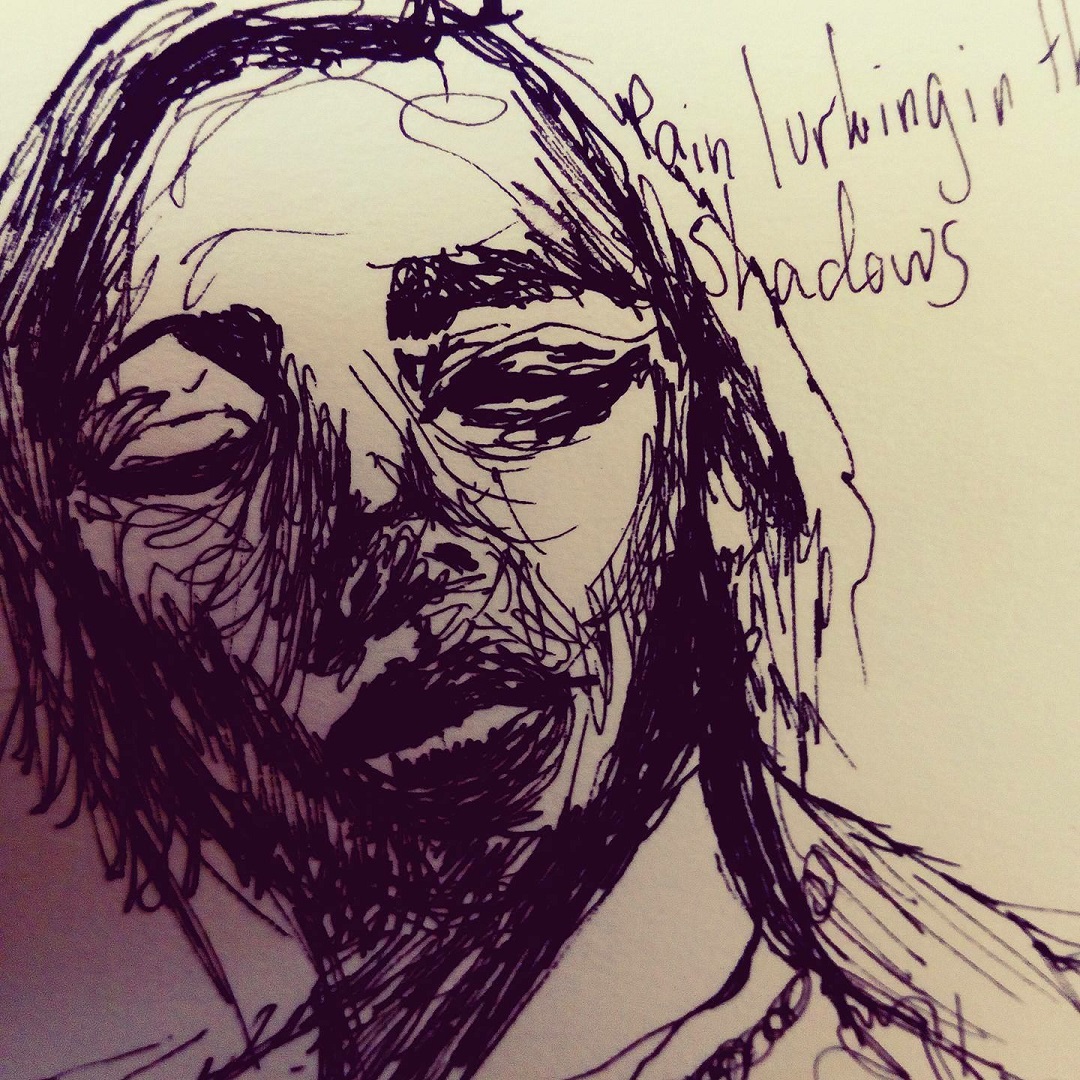 Pain lurking in th
Shadows